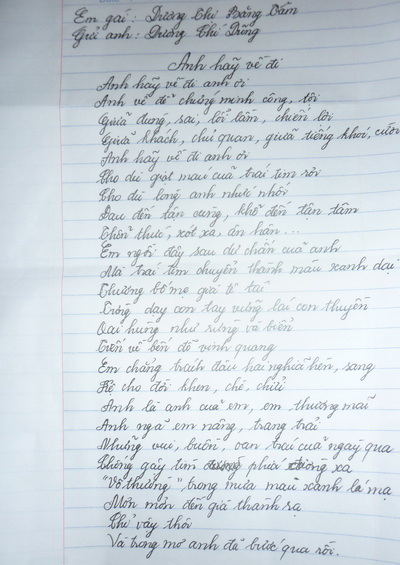 Em gái: Dương Thị Bằng Tấm
Gửi anh: Dương Chí Dũng
Anh hãy về đi
Anh hãy về đi anh ơi
Anh về để chứng minh công, tội
Giữa dung, sai, tối tăm, chiến lợi
Giữa khách, chủ quan, giữa tiếng khóc, cười
Anh hãy về đi anh ơi
Cho dù giọt máu của trái tim rơi
Cho dù lòng anh nhức nhối
Đau đến tận cùng, khổ đến tận tâm
Thổn thức, xót xa, ân hận...
Em ngồi đây sau dư chấn của anh
Mà trái tim chuyển thành màu xanh dại
Thương bố mẹ già tê tái
Trông day con tay vững lái con thuyền
Oai hùng như rừng và biển
Tiến về bến đỗ vinh quang
Em chẳng tránh đâu hai nghĩa hèn, sang
Kệ cho đời khen, chê, chửi
Anh là anh của em, em thương mãi
Anh ngã em nâng, trang trải
Những vui, buồn, oan trái của ngày qua
Chông gây tìm phía xa
"Vô thường", trong mưa màu xanh lá mạ
Mơn mởn đến giã thanh sạ
Chỉ vậy thôi
Và trong mơ anh đã bước qua rồi.